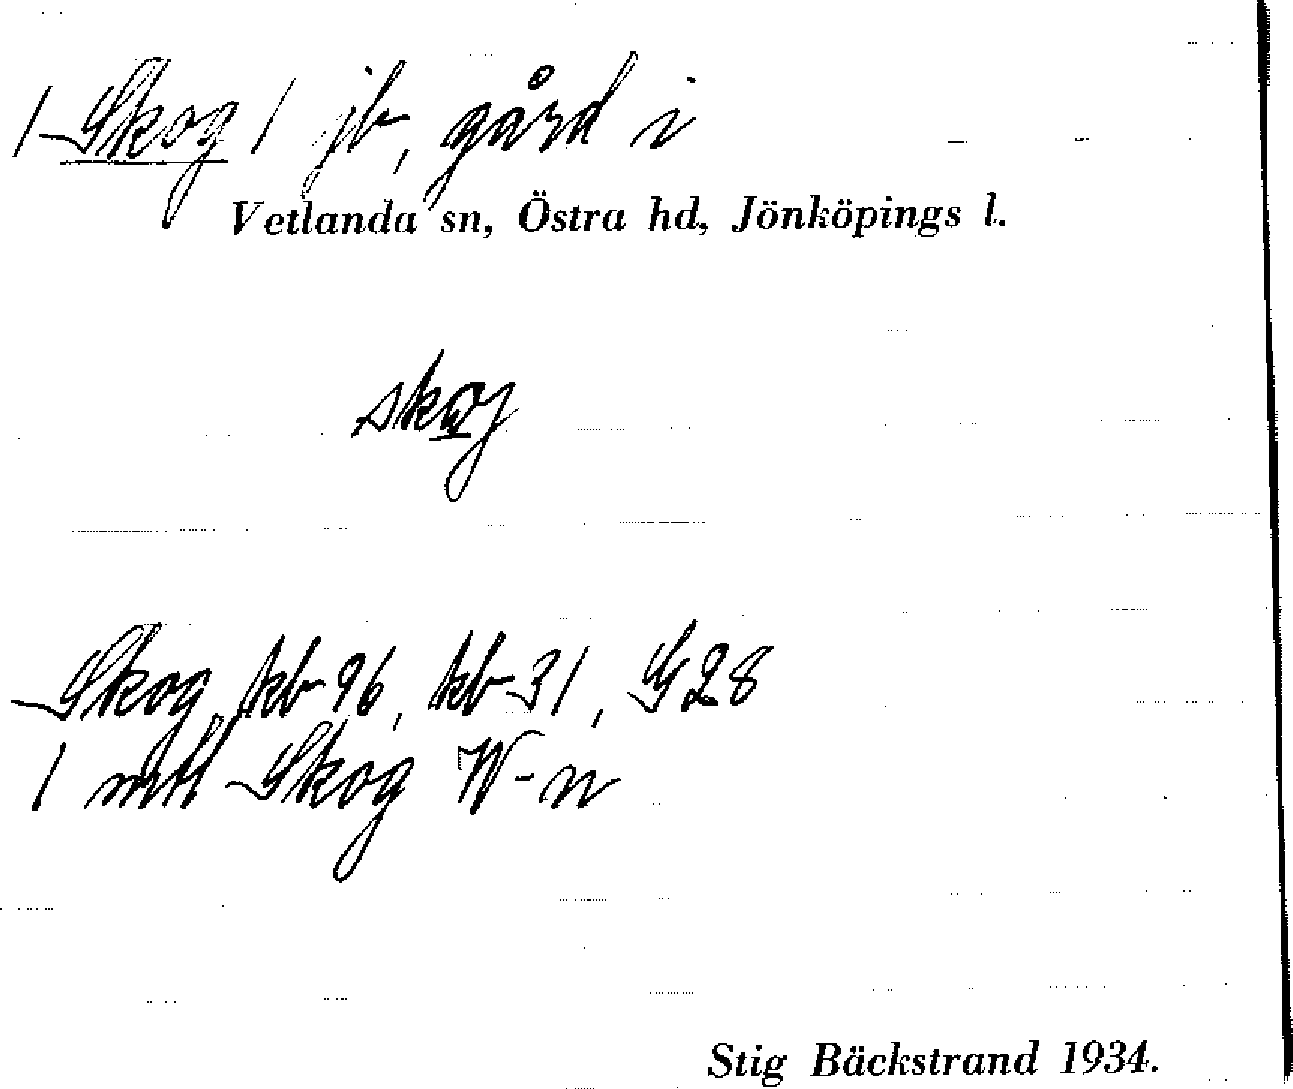 1 Skog 1 jb, gård i
Vetlanda sn, Östra hd, Jönköpings l.
skoj
Skog kb 96, kb 31, G 28
1 mtl Skog W-n
Stig Bäckstrand 1934.